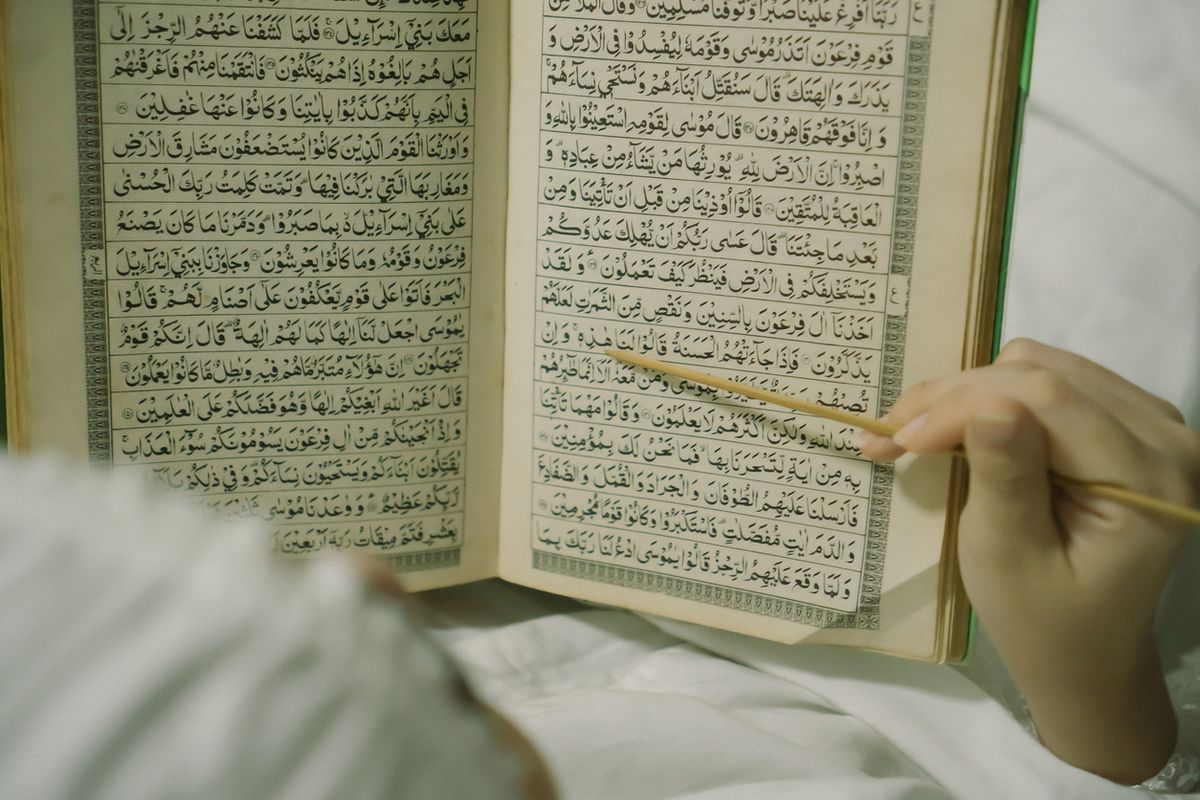 رَبَّنَآ اَفْرِغْ عَلَيْنَا صَبْرًا وَّتَوَفَّنَا مُسْلِمِيْنَ ۝ وَقَالَ الْمَلَاُ مِنْ
قَوْمِ فِرْعَوْنَ اَتَذَرُ مُوْسٰى وَقَوْمَهٗ لِيُفْسِدُوْا فِى الْاَرْضِ وَ
يَذَرَكَ وَاٰلِهَتَكَ ۗ قَالَ سَنُقَتِّلُ اَبْنَآءَهُمْ وَنَسْتَحْيٖ نِسَآءَهُمْ ۚ
وَاِنَّا فَوْقَهُمْ قَاهِرُوْنَ ۝ قَالَ مُوْسٰى لِقَوْمِهِ اسْتَعِيْنُوْا بِاللّٰهِ وَ
اصْبِرُوْا ۚ اِنَّ الْاَرْضَ لِلّٰهِ ۗ يُوْرِثُهَا مَنْ يَّشَآءُ مِنْ عِبَادِهٖ ۗ وَ
الْعَاقِبَةُ لِلْمُتَّقِيْنَ ۝ قَالُوْٓا اُوْذِيْنَا مِنْ قَبْلِ اَنْ تَأْتِيَنَا وَمِنْ
بَعْدِ مَا جِئْتَنَا ۗ قَالَ عَسٰى رَبُّكُمْ اَنْ يُّهْلِكَ عَدُوَّكُمْ
وَيَسْتَخْلِفَكُمْ فِى الْاَرْضِ فَيَنْظُرَ كَيْفَ تَعْمَلُوْنَ ۝ وَلَقَدْ
اَخَذْنَآ اٰلَ فِرْعَوْنَ بِالسِّنِيْنَ وَنَقْصٍ مِّنَ الثَّمَرٰتِ لَعَلَّهُمْ
يَذَّكَّرُوْنَ ۝ فَاِذَا جَآءَتْهُمُ الْحَسَنَةُ قَالُوْا لَنَا هٰذِهٖ ۚ وَاِنْ
تُصِبْهُمْ بِمُوْسٰى وَمَنْ مَّعَهٗ ۗ اَلَآ اِنَّمَا طٰٓئِرُهُمْ
عِنْدَ اللّٰهِ وَلٰكِنَّ اَكْثَرَهُمْ لَا يَعْلَمُوْنَ ۝ وَقَالُوْا مَهْمَا تَأْتِنَا
بِهٖ مِنْ اٰيَةٍ لِّتَسْحَرَنَا بِهَا ۙ فَمَا نَحْنُ لَكَ بِمُؤْمِنِيْنَ ۝
فَاَرْسَلْنَا عَلَيْهِمُ الطُّوْفَانَ وَالْجَرَادَ وَالْقُمَّلَ وَالضَّفَادِعَ
وَالدَّمَ اٰيٰتٍ مُّفَصَّلٰتٍ ۗ فَاسْتَكْبَرُوْا وَكَانُوْا قَوْمًا مُّجْرِمِيْنَ ۝
وَلَمَّا وَقَعَ عَلَيْهِمُ الرِّجْزُ قَالُوْا يٰمُوْسَى ادْعُ لَنَا رَبَّكَ بِمَا
مَعَكَ بَنِيْٓ اِسْرَآءِيْلَ ۝ فَلَمَّا كَشَفْنَا عَنْهُمُ الرِّجْزَ اِلٰٓى
اَجَلٍ هُمْ بٰلِغُوْهُ اِذَا هُمْ يَنْكُثُوْنَ ۝ فَانْتَقَمْنَا مِنْهُمْ فَاَغْرَقْنٰهُمْ
فِى الْيَمِّ بِاَنَّهُمْ كَذَّبُوْا بِاٰيٰتِنَا وَكَانُوْا عَنْهَا غٰفِلِيْنَ ۝
وَاَوْرَثْنَا الْقَوْمَ الَّذِيْنَ كَانُوْا يُسْتَضْعَفُوْنَ مَشَارِقَ الْاَرْضِ
وَمَغَارِبَهَا الَّتِيْ بٰرَكْنَا فِيْهَا ۗ وَتَمَّتْ كَلِمَتُ رَبِّكَ الْحُسْنٰى
عَلٰى بَنِيْٓ اِسْرَآءِيْلَ ۙ بِمَا صَبَرُوْا ۗ وَدَمَّرْنَا مَا كَانَ يَصْنَعُ
فِرْعَوْنُ وَقَوْمُهٗ وَمَا كَانُوْا يَعْرِشُوْنَ ۝ وَجَاوَزْنَا بِبَنِيْٓ اِسْرَآءِيْلَ
الْبَحْرَ فَاَتَوْا عَلٰى قَوْمٍ يَّعْكُفُوْنَ عَلٰٓى اَصْنَامٍ لَّهُمْ ۚ قَالُوْا
يٰمُوْسَى اجْعَلْ لَّنَآ اِلٰهًا كَمَا لَهُمْ اٰلِهَةٌ ۗ قَالَ اِنَّكُمْ قَوْمٌ
تَجْهَلُوْنَ ۝ اِنَّ هٰٓؤُلَآءِ مُتَبَّرٌ مَّا هُمْ فِيْهِ وَبٰطِلٌ مَّا كَانُوْا يَعْمَلُوْنَ ۝
قَالَ اَغَيْرَ اللّٰهِ اَبْغِيْكُمْ اِلٰهًا وَّهُوَ فَضَّلَكُمْ عَلَى الْعٰلَمِيْنَ ۝
وَاِذْ اَنْجَيْنٰكُمْ مِّنْ اٰلِ فِرْعَوْنَ يَسُوْمُوْنَكُمْ سُوْٓءَ الْعَذَابِ ۚ
يُقَتِّلُوْنَ اَبْنَآءَكُمْ وَيَسْتَحْيُوْنَ نِسَآءَكُمْ ۗ وَفِيْ ذٰلِكُمْ
رَّبِّكُمْ عَظِيْمٌ ۝ وَوٰعَدْنَا مُوْسٰى
بِعَشْرٍ فَتَمَّ مِيْقَاتُ رَبِّهٖٓ اَرْبَعِيْنَ